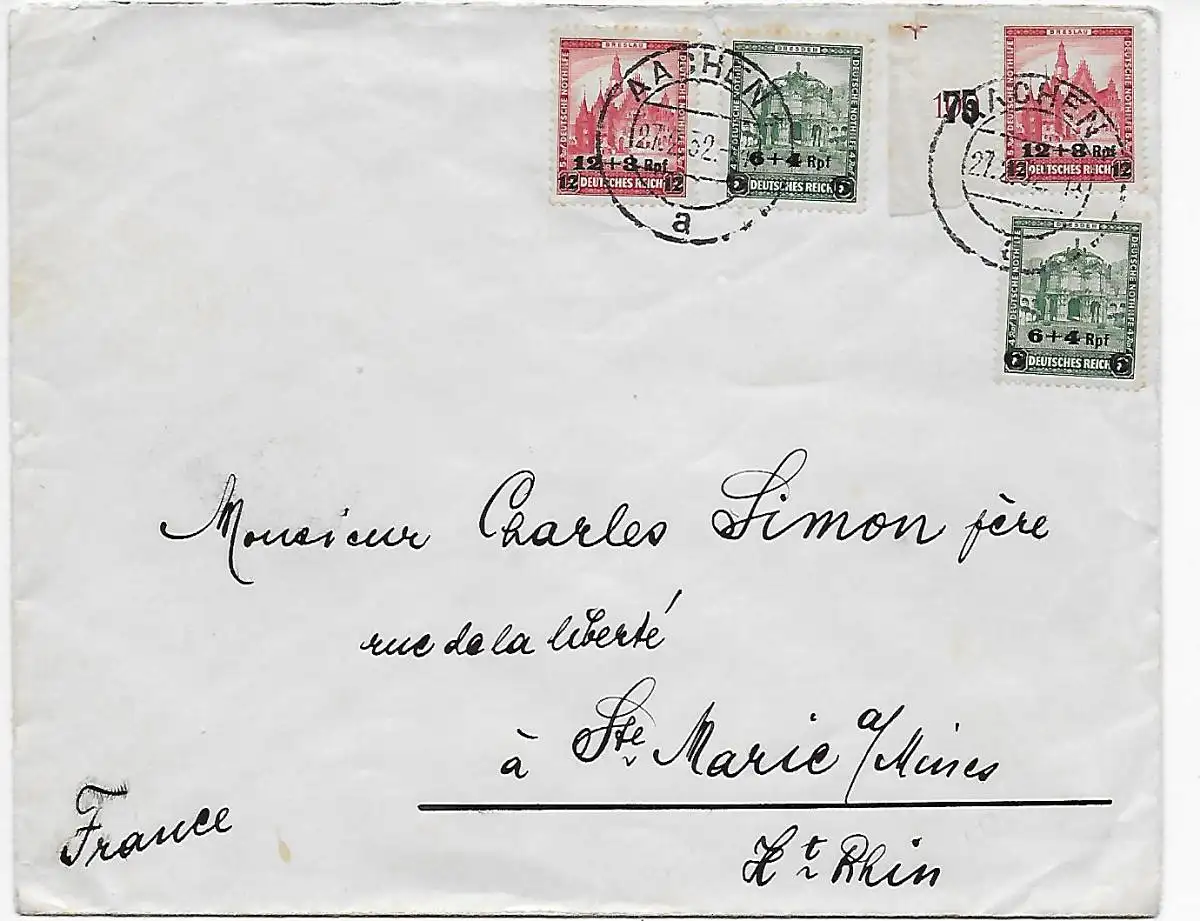 BRESLAU
DEUTSCHE NOTHILFE
12+3 Rpf
12 DEUTSCHES REICH 12
DRESDEN
DEUTSCHE NOTHILFE
6+4 Rpf
6 DEUTSCHES REICH 6
AACHEN
a
75
BRESLAU
DEUTSCHE NOTHILFE
12+3 Rpf
12 DEUTSCHES REICH 12
AACHEN
DRESDEN
DEUTSCHE NOTHILFE
6+4 Rpf
6 DEUTSCHES REICH 6
Monsieur Charles Simon père
rue de la liberté
à Ste Marie a/Mines
France
Ht Rhin